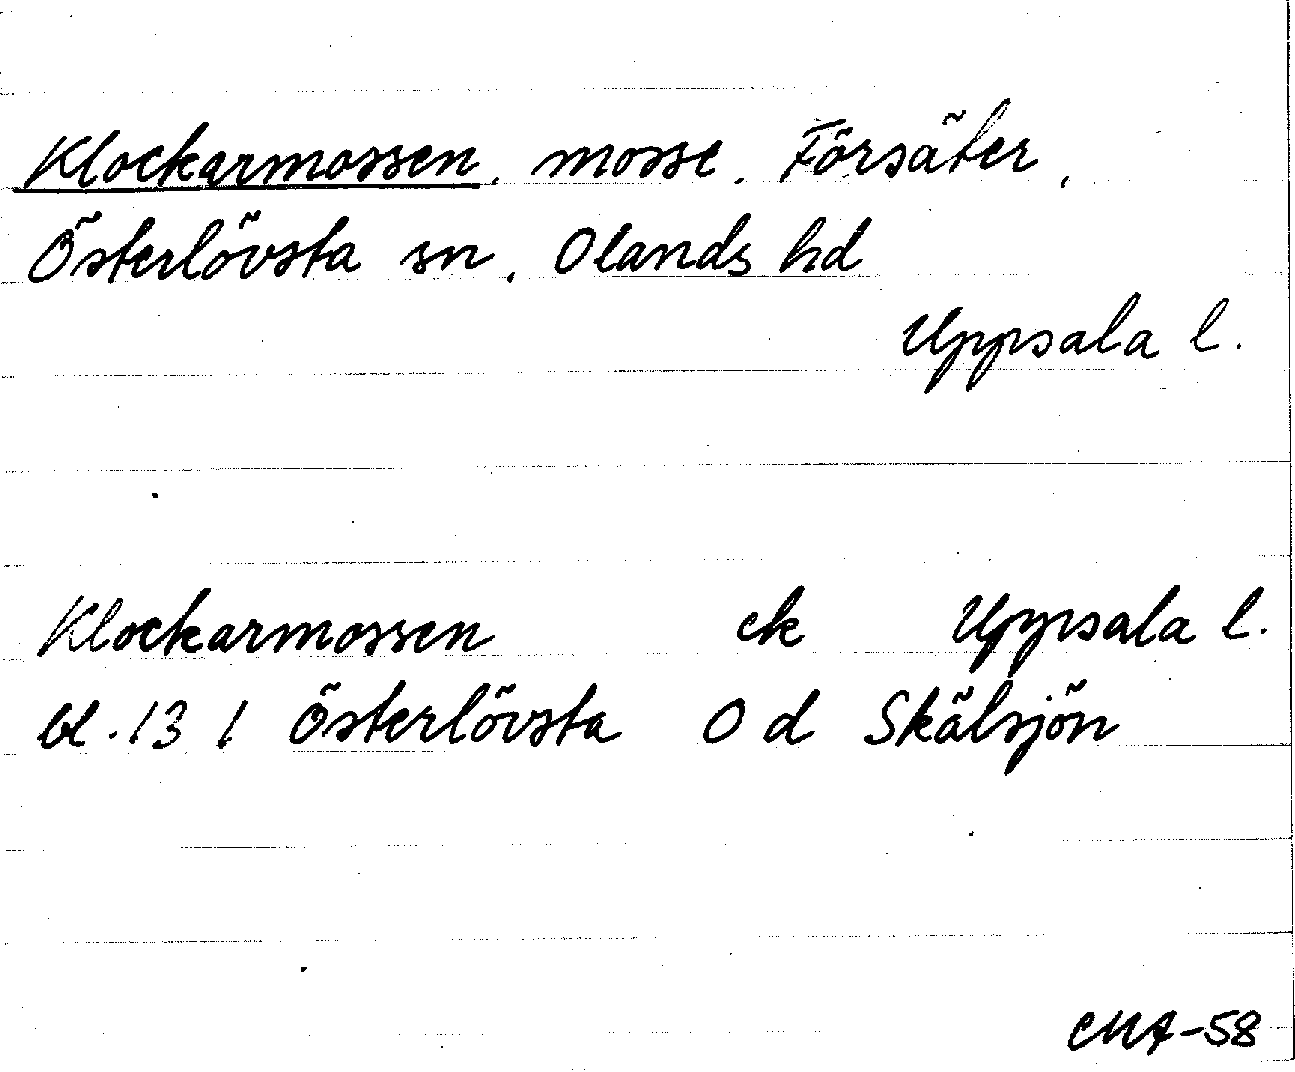 Klockarmossen, mosse. Försäter,
Österlövsta sn, Olands hd
Uppsala l.
Klockarmossen ek Uppsala l.
bl. 13 1 Österlövsta O d Skälsjön
CMA-58